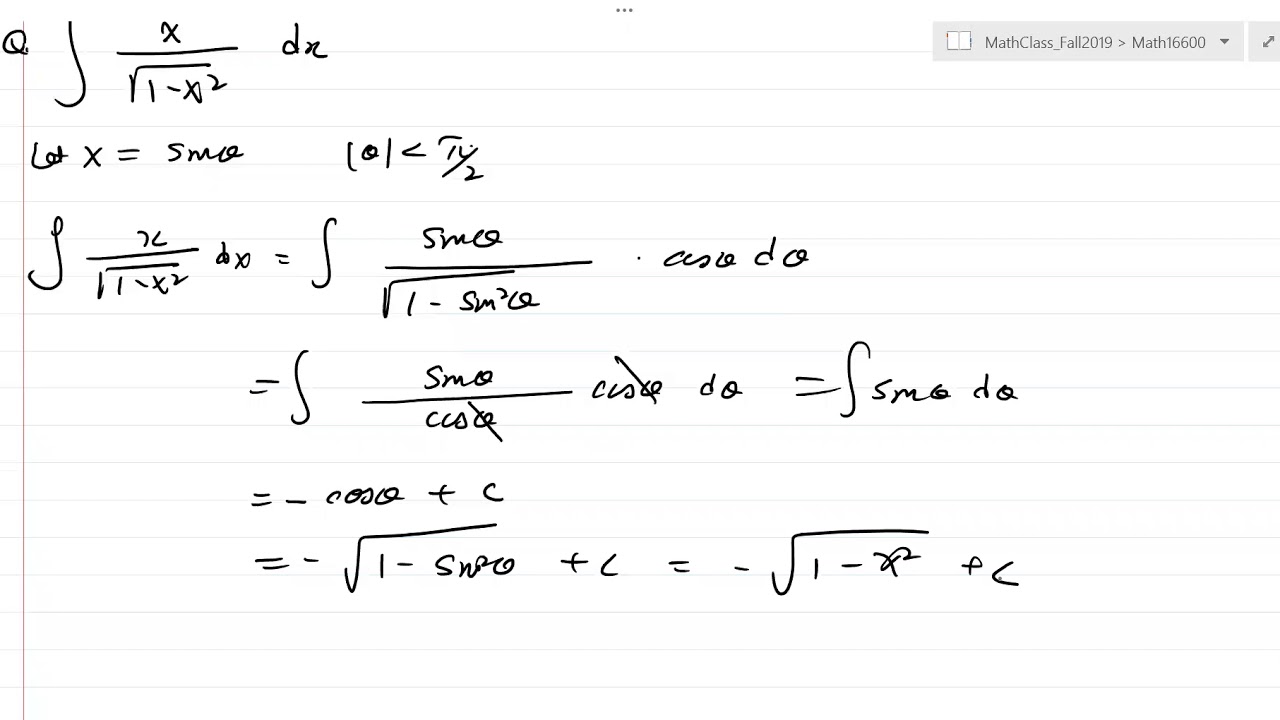 MathClass_Fall2019 > Math16600
Q. ∫ x / √(1-x²) dx
Let x = sinθ |θ| < π/2
∫ x / √(1-x²) dx = ∫ sinθ / √(1 - sin²θ) · cosθ dθ
= ∫ sinθ / cosθ cosθ dθ = ∫ sinθ dθ
= - cosθ + c
= - √(1 - sin²θ) + c = - √(1 - x²) + c